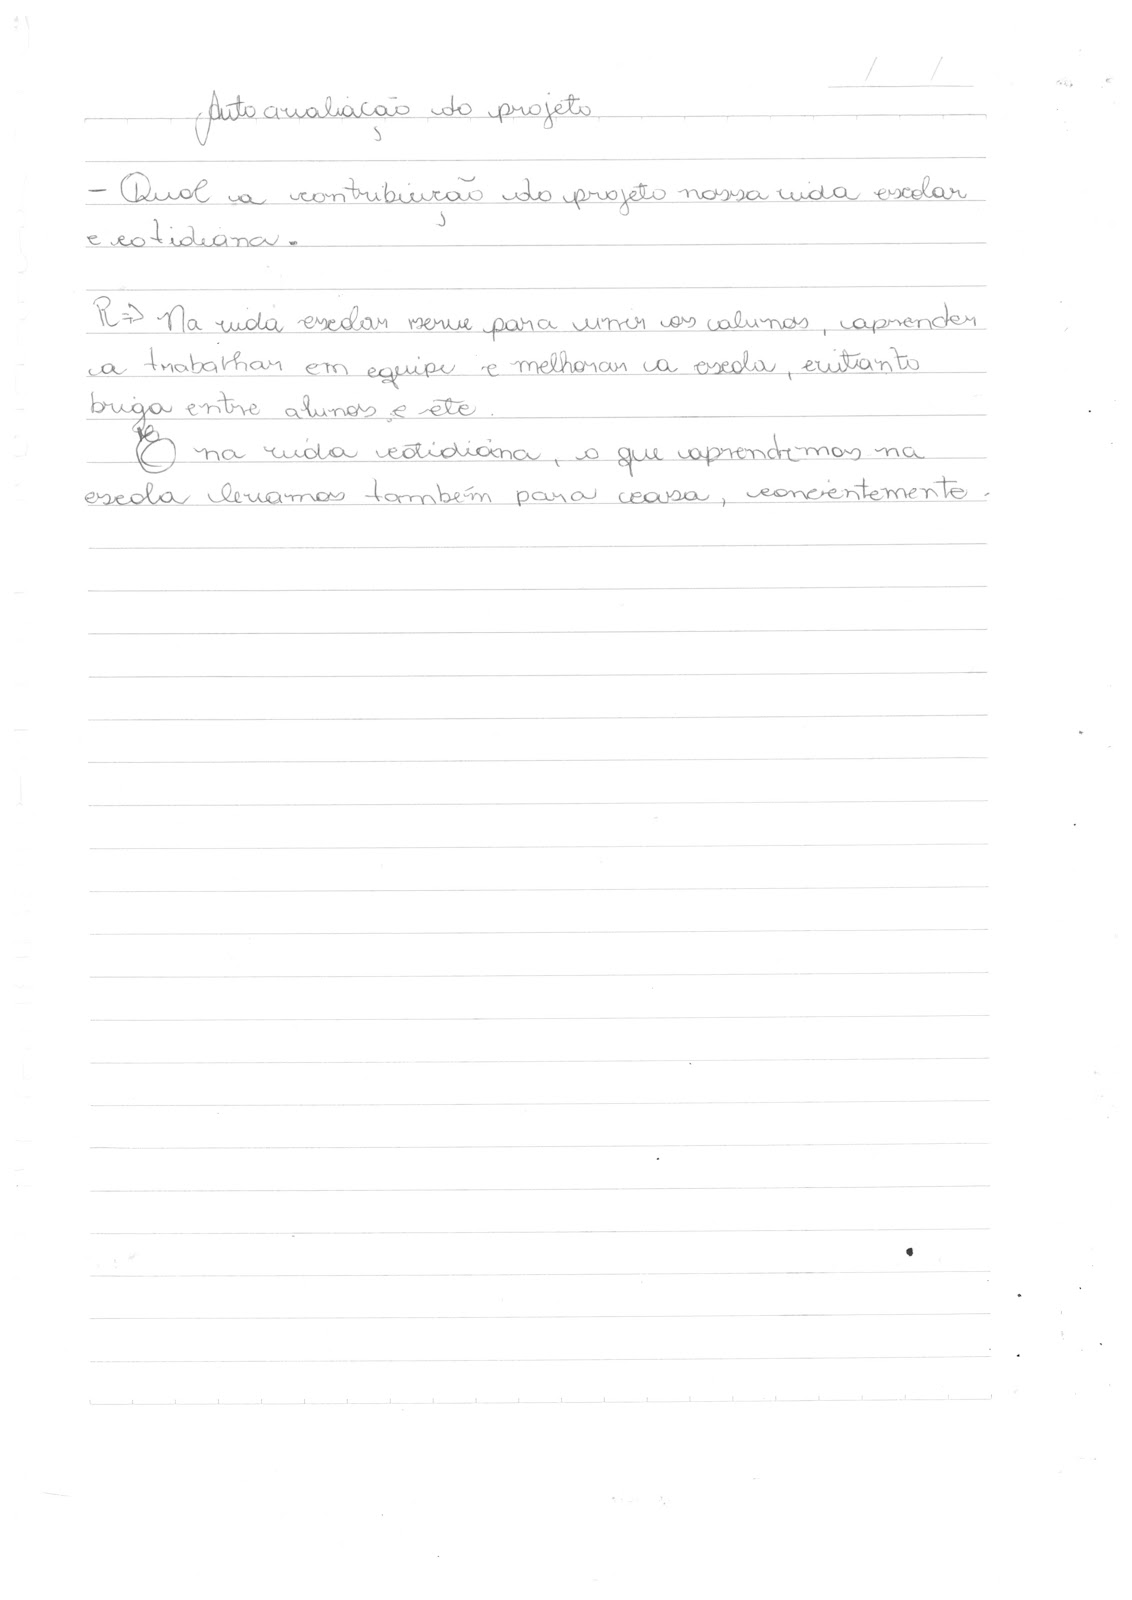 Auto avaliação do projeto
- Qual a contribuição do projeto nossa vida escolar
e cotidiana.
R=> Na vida escolar serve para unir os alunos, aprender
a trabalhar em equipe e melhorar a escola, evitanto
briga entre alunos e etc.
E na vida cotidiana, o que aprendemos na
escola levamos também para casa, concientemente.